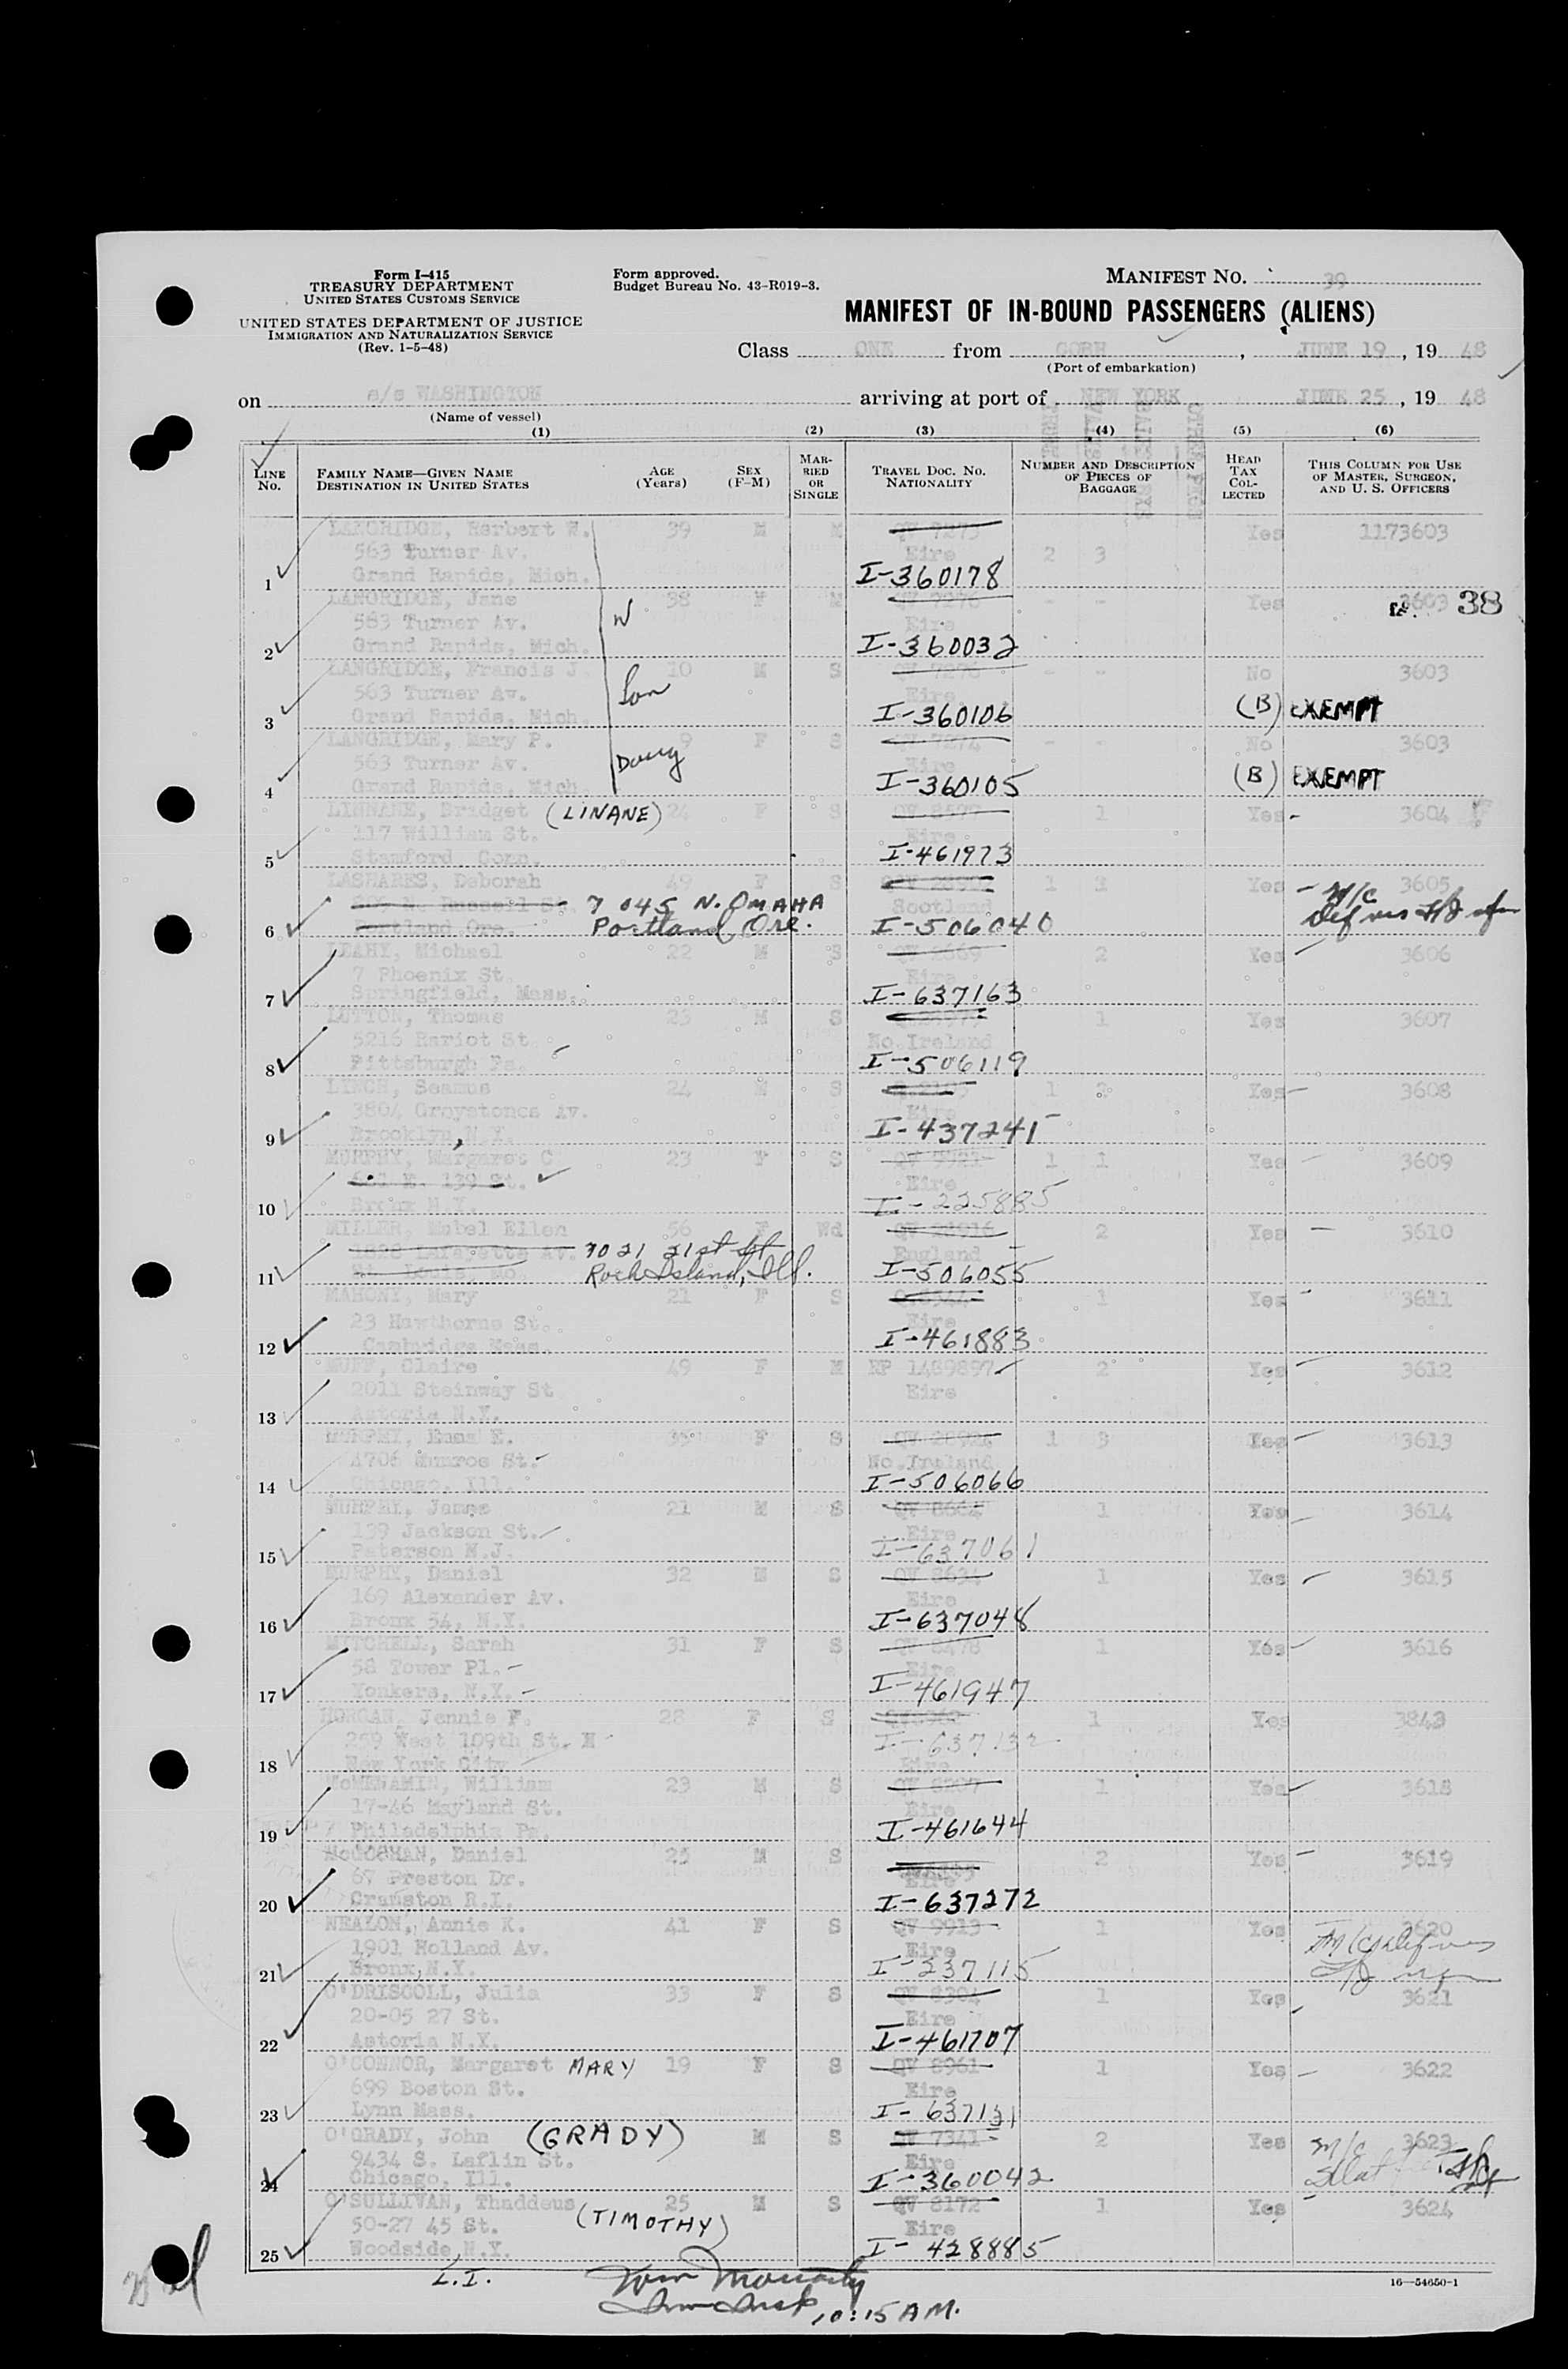 Form I-415
TREASURY DEPARTMENT
UNITED STATES CUSTOMS SERVICE
UNITED STATES DEPARTMENT OF JUSTICE
IMMIGRATION AND NATURALIZATION SERVICE
(Rev. 1-5-48)
Form approved.
Budget Bureau No. 43-R019-3.
MANIFEST NO. 39
MANIFEST OF IN-BOUND PASSENGERS (ALIENS)
Class ONE from COBH, JUNE 19, 1948
(Port of embarkation)
on s/s WASHINGTON arriving at port of NEW YORK JUNE 25, 1948
(Name of vessel)
(1) (2) (3) (4) (5) (6)
LINE No. FAMILY NAME—GIVEN NAME DESTINATION IN UNITED STATES AGE (Years) SEX (F-M) MARRIED OR SINGLE TRAVEL DOC. NO. NATIONALITY NUMBER AND DESCRIPTION OF PIECES OF BAGGAGE HEAD TAX COLLECTED THIS COLUMN FOR USE OF MASTER, SURGEON, AND U. S. OFFICERS
LANGRIDGE, Herbert W. 39 M M QV 7275 Yes 1173603
563 Turner Av. Eire 2 3
1 Grand Rapids, Mich. I-360178
LANGRIDGE, Jane 38 F M QV 7276 - - Yes 3603 38
563 Turner Av. W Eire
2 Grand Rapids, Mich. I-360032
LANGRIDGE, Francis J. 10 M S QV 7276 - - No 3603
563 Turner Av. Son Eire
3 Grand Rapids, Mich. I-360106 (B) EXEMPT
LANGRIDGE, Mary P. 9 F S QV 7274 - - No 3603
563 Turner Av. Daug Eire
4 Grand Rapids, Mich. I-360105 (B) EXEMPT
LINNANE, Bridget (LINANE) 24 F S 1 Yes - 3604
117 William St. Eire
5 Stamford, Conn. I-461973
LASHARES, Deborah 49 F S 1 Yes - M/C 3605
7045 N. OMAHA Scotland
6 Portland Ore. Portland Ore. I-506040
LEAHY, Michael 22 M S QV 8669 2 Yes 3606
7 Phoenix St. Eire
7 Springfield, Mass. I-637163
LUTTON, Thomas 23 M S 1 Yes 3607
5216 Hariot St. No.Ireland
8 Pittsburgh Pa. I-506119
LYNCH, Seamus 24 M S 1 Yes 3608
3804 Greystones Av. Eire
9 Brooklyn, N.Y. I-437245
MURPHY, Margaret C 23 F S 1 1 Yes 3609
E. 139 St. Eire
10 Bronx N.Y. I-225885
MILLER, Mabel Ellen 56 F Wd 2 Yes 3610
Lafayette Av. 3021 21st St England
11 St. Louis, Mo. Rock Island, Ill. I-506055
MAHONY, Mary 21 F S 1 Yes 3611
23 Hawthorne St. Eire
12 Cambridge Mass. I-461883
MUFF, Claire 49 F M RP 1489897 2 Yes 3612
2011 Steinway St Eire
13 Astoria N.Y.
MURPHY, Emma E. F S 1 3 Yes 3613
4706 Munroe St. No.Ireland
14 Chicago, Ill. I-506066
MURPHY, James 21 M S QV 8664 1 Yes 3614
139 Jackson St. Eire
15 Paterson N.J. I-637061
MURPHY, Daniel 32 M S QV 8634 1 Yes 3615
169 Alexander Av. Eire
16 Bronx 54, N.Y. I-637048
MITCHELL, Sarah 31 F S QV 8478 1 Yes 3616
58 Tower Pl. Eire
17 Yonkers, N.Y. I-461947
MORGAN, Jennie F. 28 F S 1 Yes 3843
259 West 109th St. I-637132
18 New York City Eire
McMENAMIN, William 23 M S 1 Yes 3618
17-46 Mayland St. Eire
19 Philadelphia Pa. I-461644
Daniel 25 M S 2 Yes 3619
67 Preston Dr. Eire
20 Cranston R.I. I-637272
NEALON, Annie K. 41 F S QV 9913 1 Yes 3620
1901 Holland Av. Eire
21 Bronx, N.Y. I-237115
O'DRISCOLL, Julia 33 F S QV 8304 1 Yes 3621
20-05 27 St. Eire
22 Astoria N.Y. I-461707
O'CONNOR, Margaret MARY 19 F S QV 8961 1 Yes 3622
699 Boston St. Eire
23 Lynn Mass. I-637131
O'GRADY, John (GRADY) M S QV 7341 2 Yes M/C 3623
9434 S. Laflin St. Eire
24 Chicago, Ill. I-360042
O'SULLIVAN, Thaddeus 25 M S QV 8172 1 Yes 3624
50-27 45 St. (TIMOTHY) Eire
25 Woodside N.Y. I-428885
L.I.
10:15 A.M.
16—54650-1